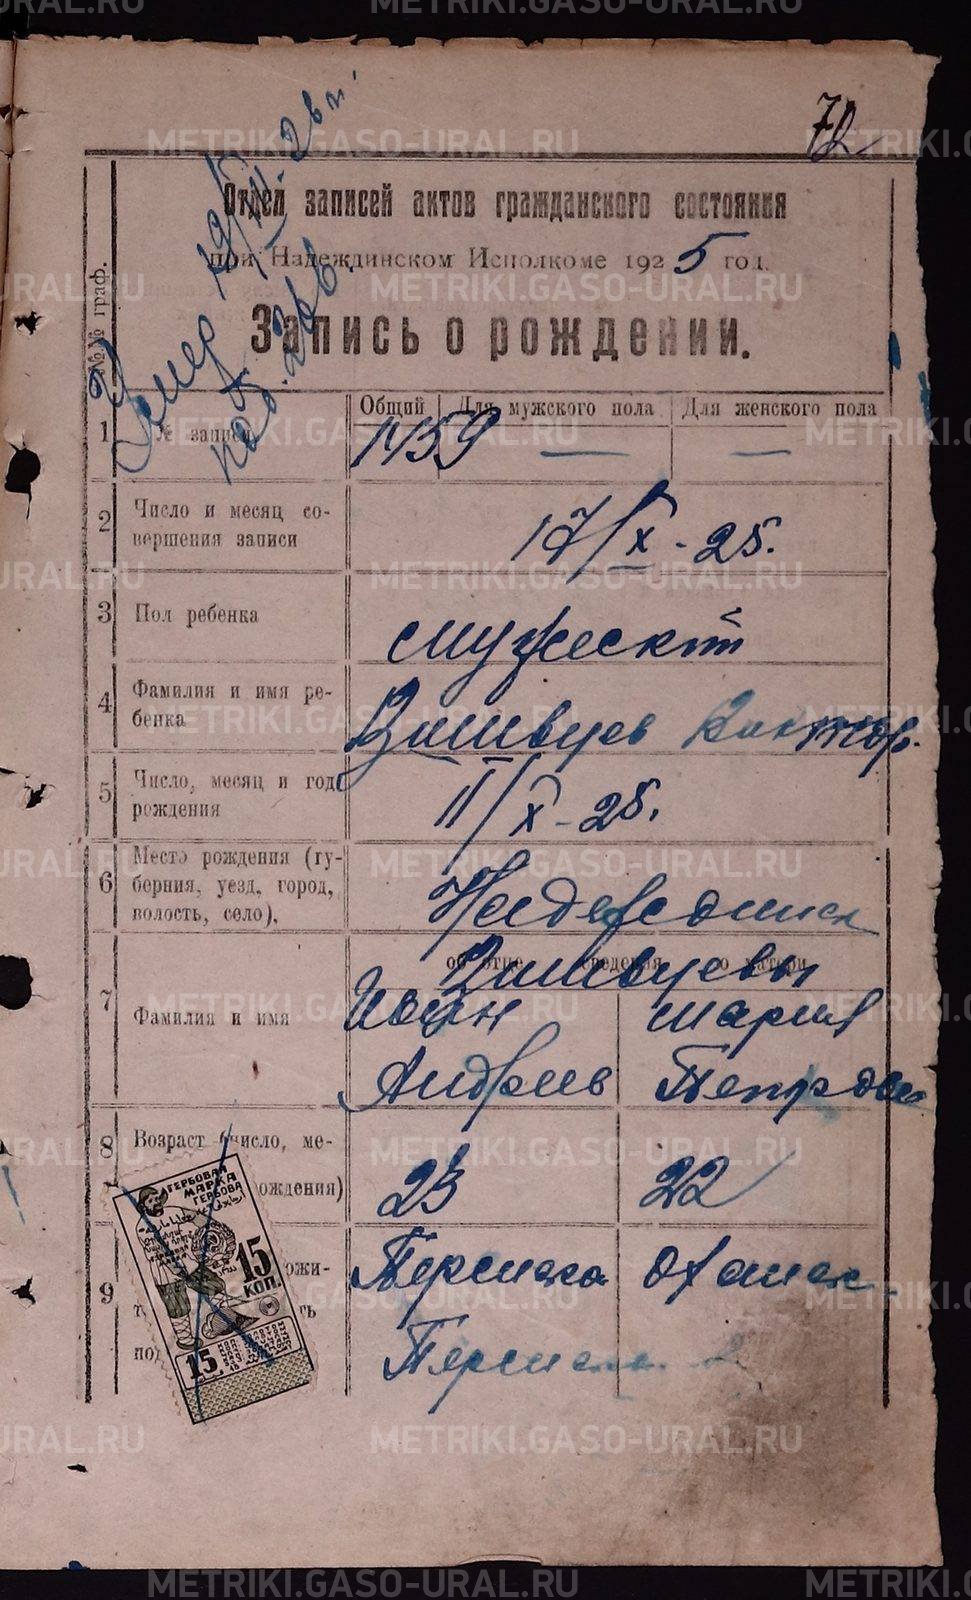 72
Отдел записей актов гражданского состояния
при Надеждинском Исполкоме 1925 год.
Запись о рождении.
Умер 19/VII. 26 г.
№№ граф.
Общий Для мужского пола Для женского пола
1 № записи 1459 — —
2 Число и месяц со-
вершения записи 17/X - 25.
3 Пол ребенка мужеский
4 Фамилия и имя ре-
бенка Виктор.
5 Число, месяц и год
рождения 11/X - 25.
6 Место рождения (гу-
берния, уезд, город,
волость, село). Надеждинск
об отце сведения о матери
7 Фамилия и имя Иван Мария
Андреев Петровна
8 Возраст (число, ме-
рождения) 23 22
9 Пермская Оханск
Пермская
ГЕРБОВАЯ
МАРКА
ГЕРБОВА
15
КОП.
15
METRIKI.GASO-URAL.RU